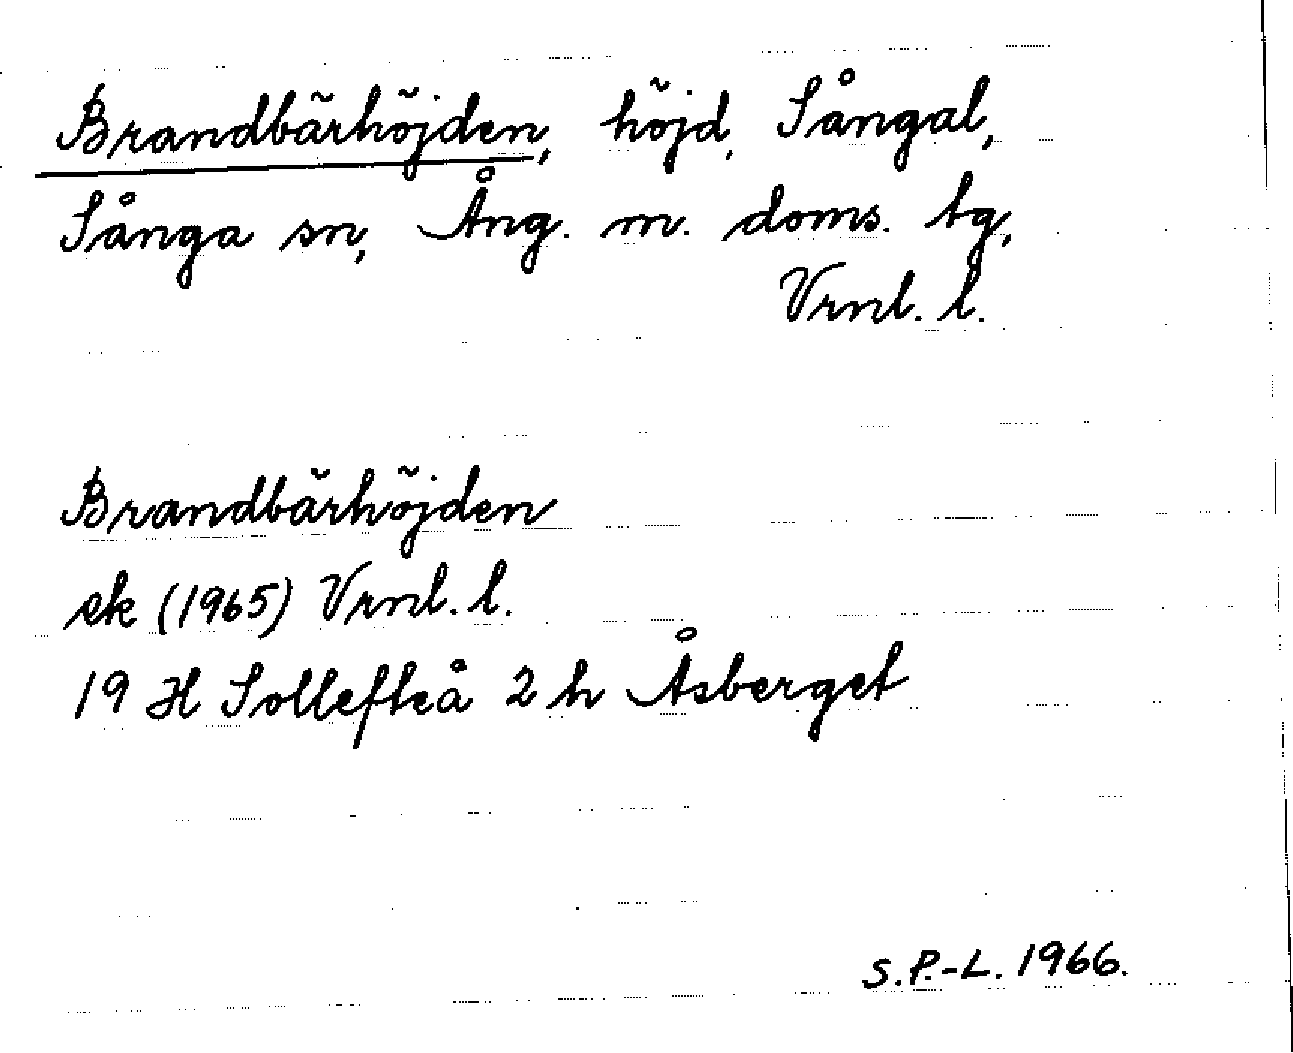 Brandbärhöjden, höjd, Sångal,
Sånga sn, Ång. m. doms. tg,
Vrnl. l.
Brandbärhöjden
ek (1965) Vrnl. l.
19 H Sollefteå 2 h Åsberget
S.P.-L. 1966.